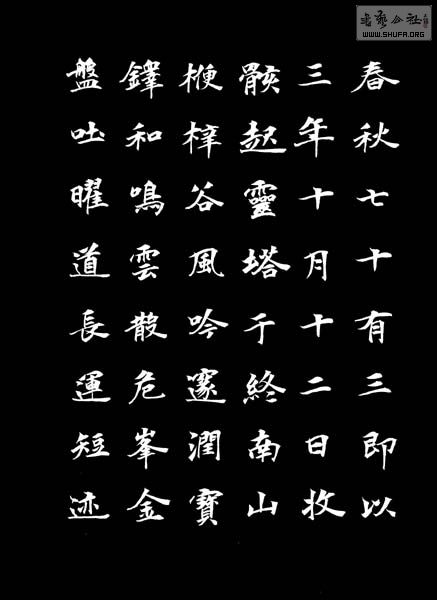 春秋七十有三即以
三年十月十二日收
骸起靈塔于終南山
楩梓谷風吟邃潤寶
鐸和鳴雲散危峯金
盤吐曜道長運短迹
WWW.SHUFA.ORG